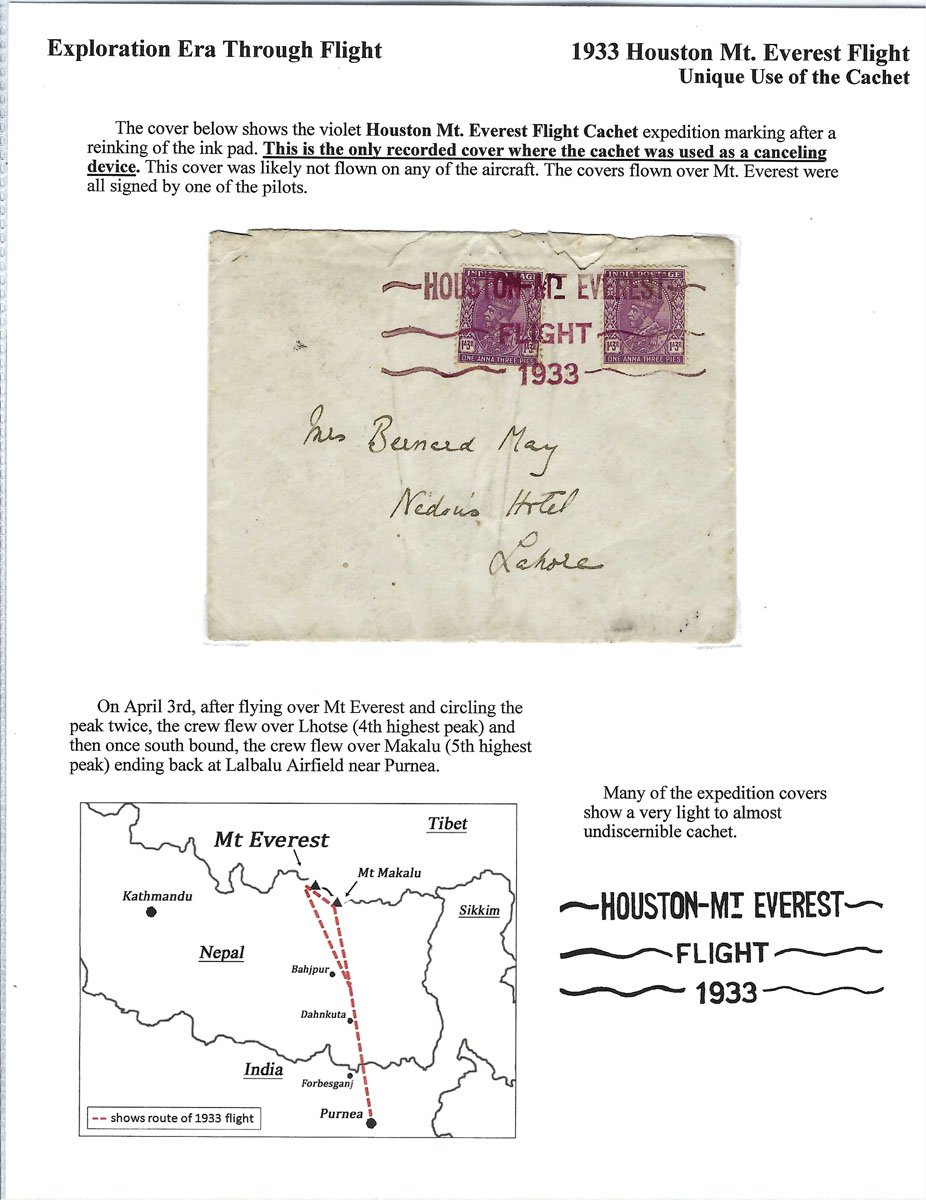 Exploration Era Through Flight
1933 Houston Mt. Everest Flight
Unique Use of the Cachet
The cover below shows the violet Houston Mt. Everest Flight Cachet expedition marking after a
reinking of the ink pad. This is the only recorded cover where the cachet was used as a canceling
device. This cover was likely not flown on any of the aircraft. The covers flown over Mt. Everest were
all signed by one of the pilots.
INDIA POSTAGE
INDIA POSTAGE
HOUSTON-MT EVEREST
FLIGHT
1933
1A3P 1A3P
1A3P 1A3P
ONE ANNA THREE PIES
ONE ANNA THREE PIES
Mrs Bernard May
Nedou's Hotel
Lahore
On April 3rd, after flying over Mt Everest and circling the
peak twice, the crew flew over Lhotse (4th highest peak) and
then once south bound, the crew flew over Makalu (5th highest
peak) ending back at Lalbalu Airfield near Purnea.
Many of the expedition covers
show a very light to almost
undiscernible cachet.
Tibet
Mt Everest
Mt Makalu
Kathmandu
Sikkim
Nepal
Bahjpur
Dahnkuta
India
Forbesganj
Purnea
-- shows route of 1933 flight
HOUSTON-MT EVEREST
FLIGHT
1933